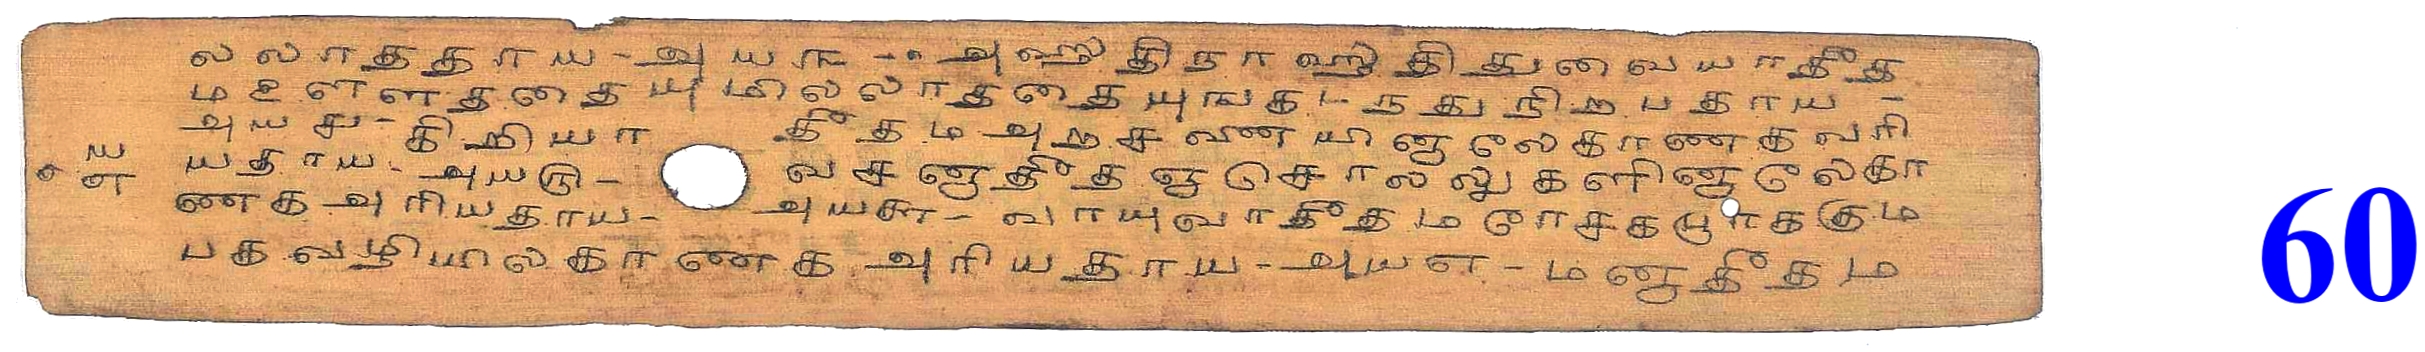 லலாததாய-அயஈ-அஹதிநாஹதிதுவையாதீத
மஉளளததையுமிலலாததையுஙகடநதுநிறபதாய-
அயசு-கிறியாதீதமஅறசவணயினாலேகாணகவரி
யதாய-அயரு-வசனாதீதஞசொலலுகளினாலேகா
ணகஅரியதாய-அயசா-வாயுவாதீதமரேசகபூரககும
பகவழியிலகாணகஅரியதாய-அயஎ-மனாதீதம
ய
எ
60